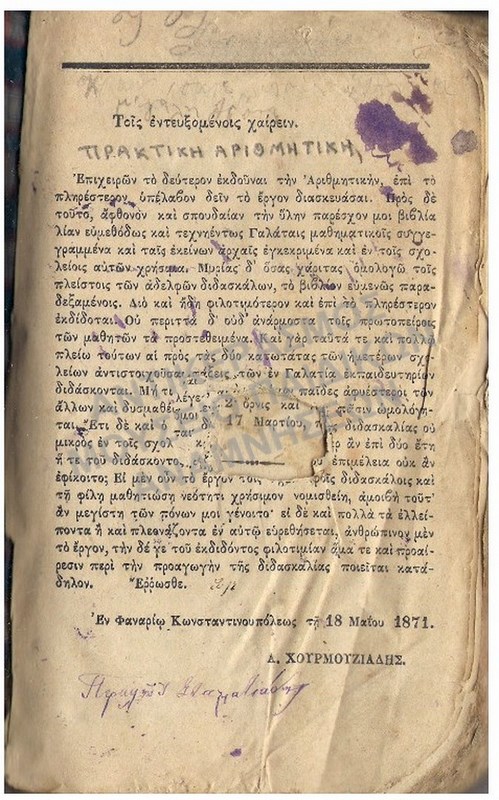 Τοῖς ἐντευξομένοις χαίρειν.
ΠΡΑΚΤΙΚΗ ΑΡΙΘΜΗΤΙΚΗ,
Ἐπιχειρῶν τὸ δεύτερον ἐκδοῦναι τὴν Ἀριθμητικὴν, ἐπὶ τὸ
πληρέστερον ὑπέλαβον δεῖν τὸ ἔργον διασκευάσαι. Πρὸς δὲ
τοῦτο, ἄφθονον καὶ σπουδαίαν τὴν ὕλην παρέσχον μοι βιβλία
λίαν εὐμεθόδως καὶ τεχνηέντως Γαλάταις μαθηματικοῖς συγγε-
γραμμένα καὶ ταῖς ἐκείνων ἀρχαῖς ἐγκεκριμένα καὶ ἐν τοῖς σχο-
λείοις αὐτῶν χρήσιμα. Μυρίας δ' ὅσας χάριτας ὁμολογῶ τοῖς
πλείστοις τῶν ἀδελφῶν διδασκάλων, τὸ βιβλίον εὐμενῶς παρα-
δεξαμένοις. Διὸ καὶ ἤδη φιλοτιμότερον καὶ ἐπὶ τὸ πληρέστερον
ἐκδίδοται. Οὐ περιττὰ δ' οὐδ' ἀνάρμοστα τοῖς πρωτοπείροις
τῶν μαθητῶν τὰ προστεθειμένα. Καὶ γὰρ ταῦτά τε καὶ πολλῷ
πλείω τούτων αἱ πρὸς τὰς δύο κατωτάτας τῶν ἡμετέρων σχο-
λείων ἀντιστοιχοῦσαι τάξεις τῶν ἐν Γαλατίᾳ ἐκπαιδευτηρίων
διδάσκονται. Μή τι λέγε παῖδες ἀφυέστεροι τῶν
ἄλλων καὶ δυσμαθέ 2 ὄρνις καὶ πᾶσιν ὡμολόγη-
ται. Ἔτι δὲ καὶ 17 Μαρτίου, διδασκαλίας οὐ
μικρὸς ἐν τοῖς σχολ ἂν ἐπὶ δύο ἔτη
ἥ τε τοῦ διδάσκοντο ἐπιμέλεια οὐκ ἂν
ἐφίκοιτο; Εἰ μὲν οὖν τὸ ἔργον τοῖς διδασκάλοις καὶ
τῇ φίλῃ μαθητιώσῃ νεότητι χρήσιμον νομισθείη, ἀμοιβὴ τοῦτ'
ἂν μεγίστη τῶν πόνων μοι γένοιτο· εἰ δὲ καὶ πολλὰ τὰ ἐλλεί-
ποντα ἢ καὶ πλεονάζοντα ἐν αὐτῷ εὑρεθήσεται, ἀνθρώπινον μὲν
τὸ ἔργον, τὴν δέ γε τοῦ ἐκδιδόντος φιλοτιμίαν ἅμα τε καὶ προαί-
ρεσιν περὶ τὴν προαγωγὴν τῆς διδασκαλίας ποιεῖται κατά-
δηλον. Ἔρρωσθε.
Ἐν Φαναρίῳ Κωνσταντινουπόλεως τῇ 18 Μαΐου 1871.
Α. ΧΟΥΡΜΟΥΖΙΑΔΗΣ.